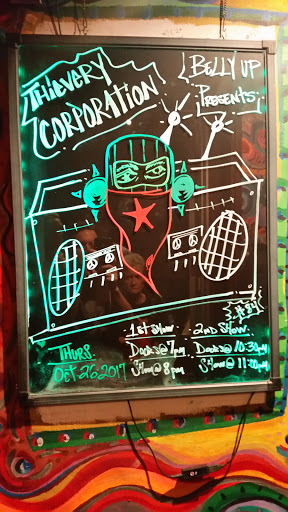 Thievery
Corporation
Belly Up
Presents:
1st Show
Doors @ 7pm
Show @ 8pm
2nd Show
Doors @ 10:30pm
Show @ 11:00pm
Thurs.
Oct 26 2017